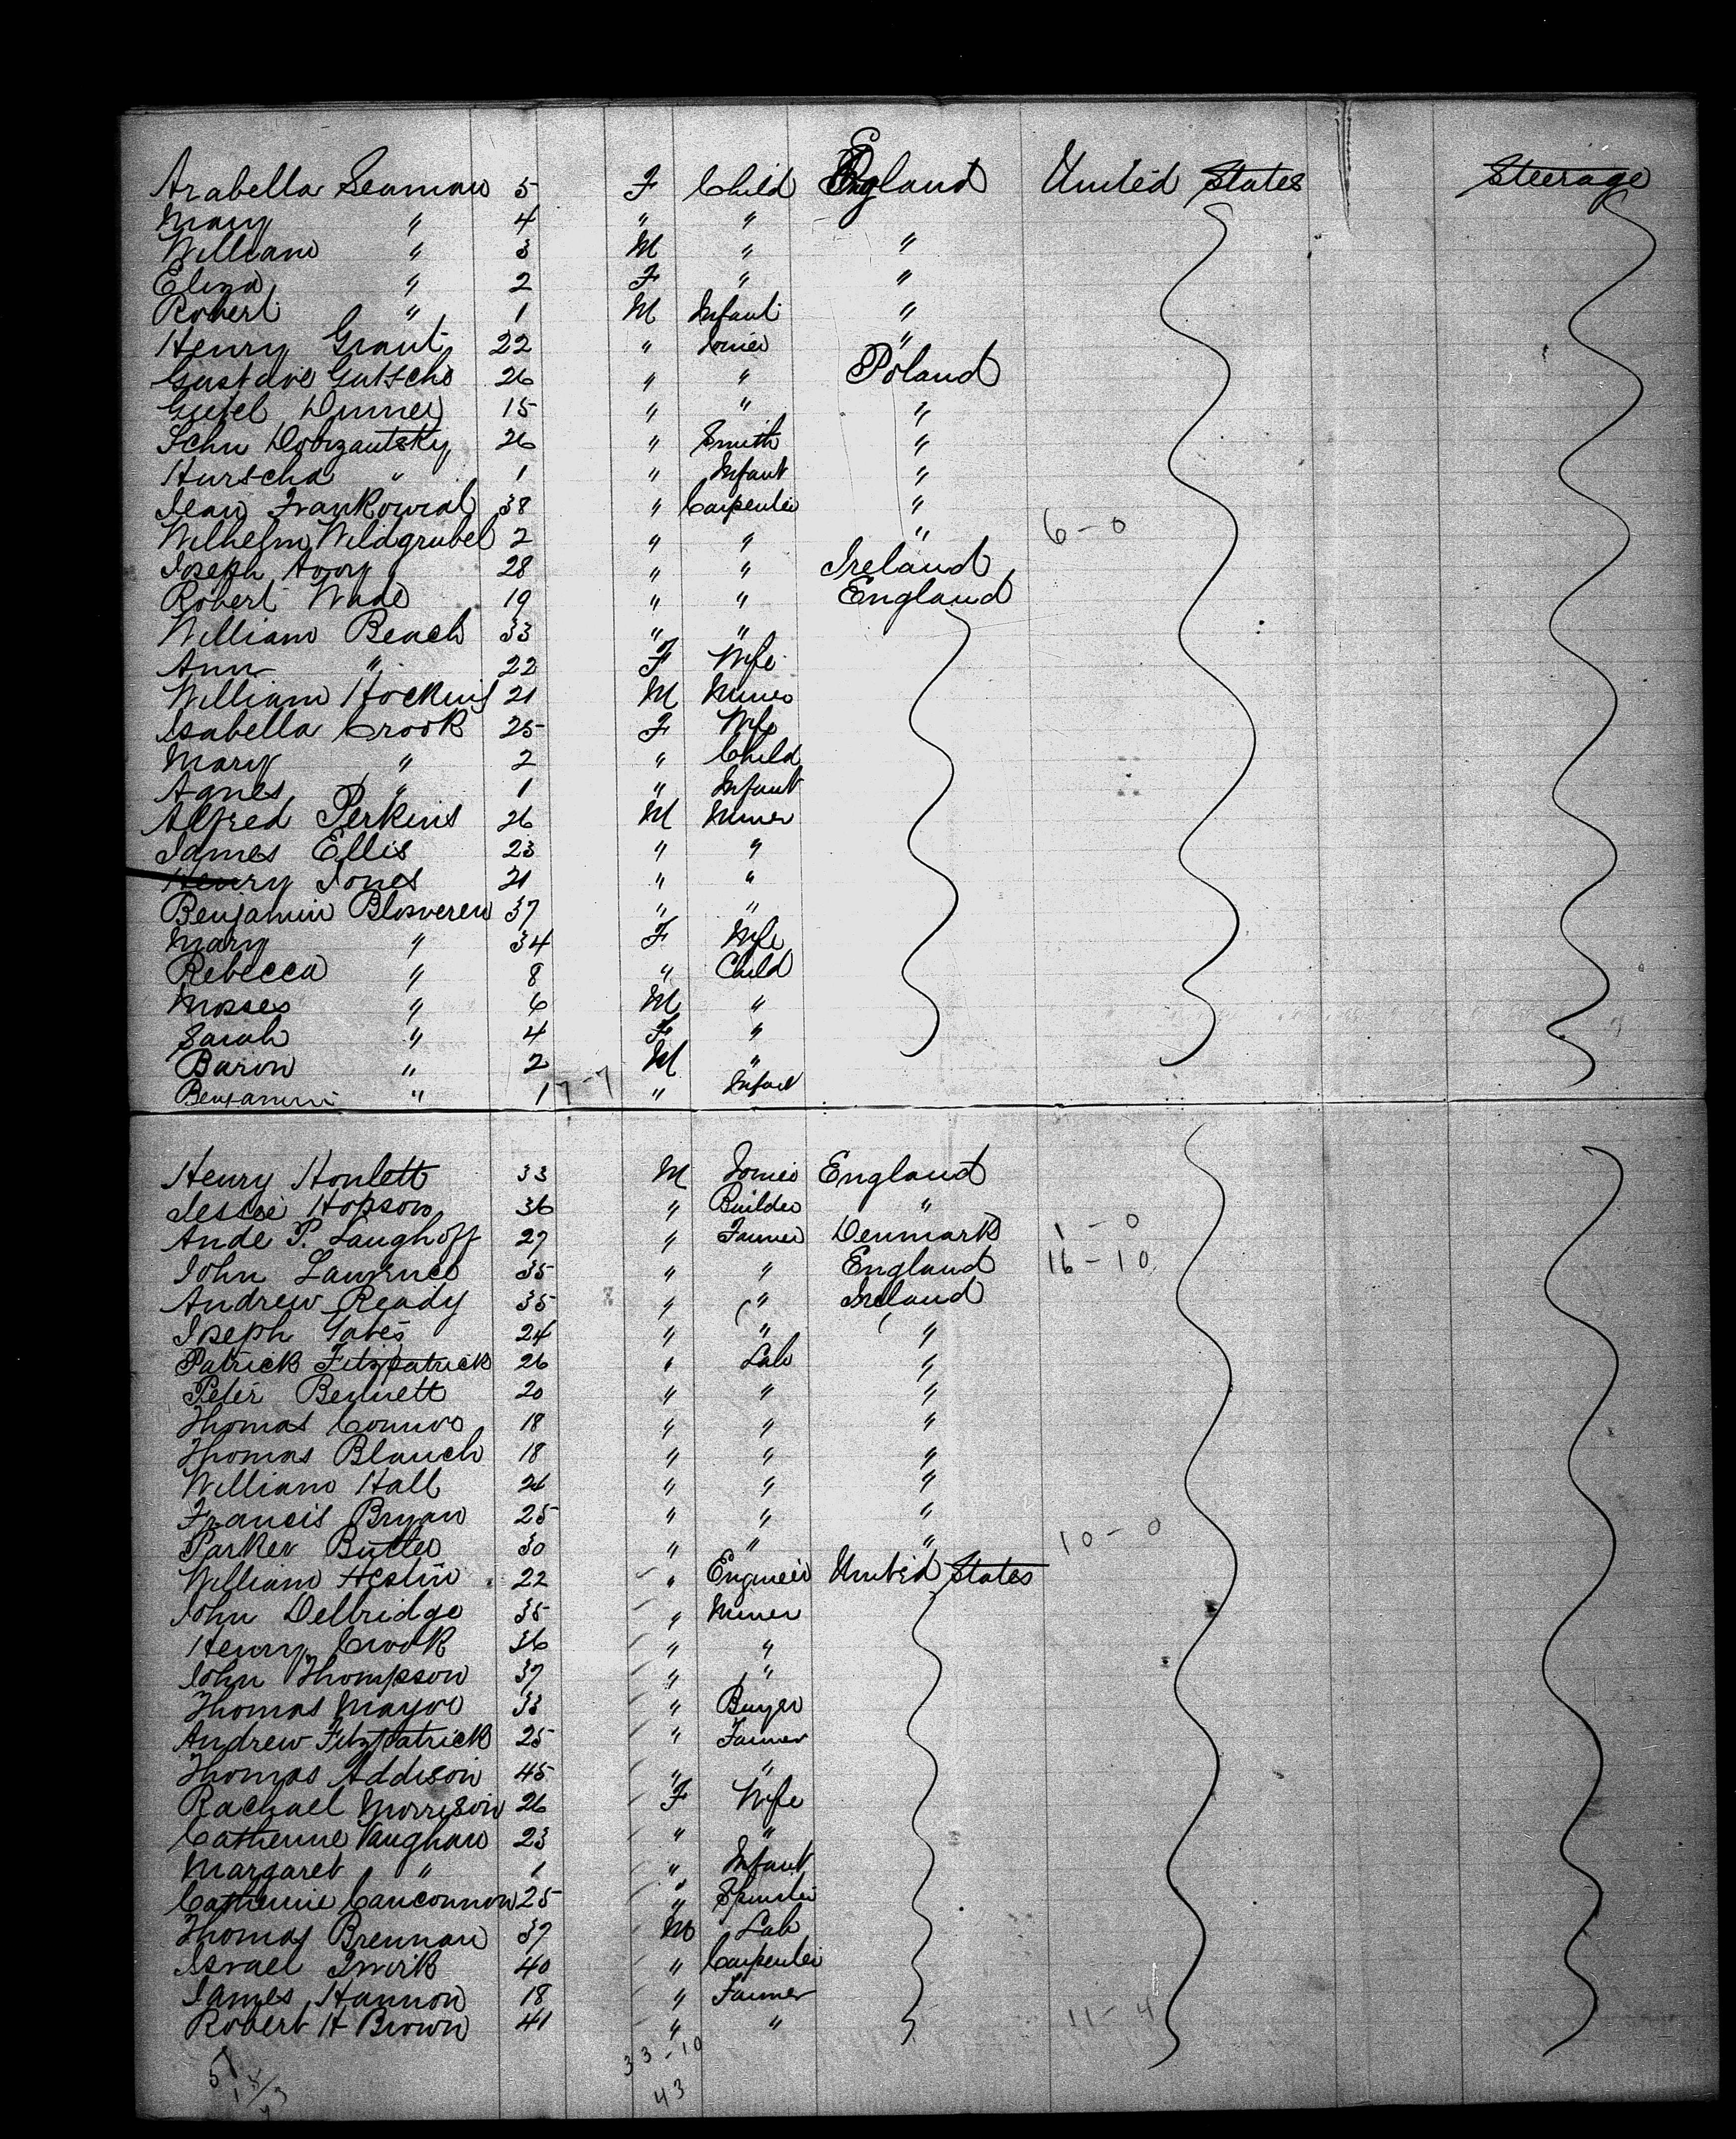 Arabella Seaman 5 F Child England United States Steerage
Mary " 4 " "
William " 3 M " "
Eliza " 2 F " "
Robert " 1 M Infant "
Henry Grant 22 " Joiner "
Gustave 26 " " Poland
15 " " "
26 " Smith "
" 1 " Infant "
38 " Carpenter "
Wilhelm Wildgrubel 2 " " " 6-0
Joseph 28 " " Ireland
Robert Wade 19 " " England
William Beach 33 " "
Ann " 22 F Wife
William Hockins 21 M Miner
Isabella Crook 25 F Wife
Mary " 2 " Child
Agnes " 1 " Infant
Alfred Perkins 26 M Miner
James Ellis 23 " "
Henry Jones 21 " "
Benjamin 37 " "
Mary " 34 F Wife
Rebecca " 8 " Child
Mosses " 6 M "
Sarah " 4 F "
Baron " 2 M "
Benjamin " 1 7-7 " Infant
Henry Honlett 33 M Joiner England
Jessie Hopson 36 " Builder "
Ande P. Laughoff 27 " Farmer Denmark 1-0
John Lawrence 35 " " England 16-10
Andrew Ready 35 " " Ireland
Joseph Gates 24 " " "
Patrick Fitzpatrick 26 " Lab "
Peter Bennett 20 " " "
Thomas Connor 18 " " "
Thomas Blanch 18 " " "
William Hall 21 " " "
Francis Bryan 25 " " "
Parker Butler 30 " " " 10-0
William Heslin 22 " Engineer United States
John Delbridge 35 " Miner
Henry Crook 36 " "
John Thompson 37 " "
Thomas Mayor 33 " Buyer
Andrew Fitzpatrick 25 " Farmer
Thomas Addison 45 " "
Rachael Morrison 26 F Wife
Catherine Vaughan 23 " "
Margaret " 1 " Infant
Catherine Canconnon 25 " Spinster
Thomas Brennan 37 M Lab
Israel 40 " Carpenter
James Hannon 18 " Farmer
Robert H Brown 41 " " 11-4
33-10
43